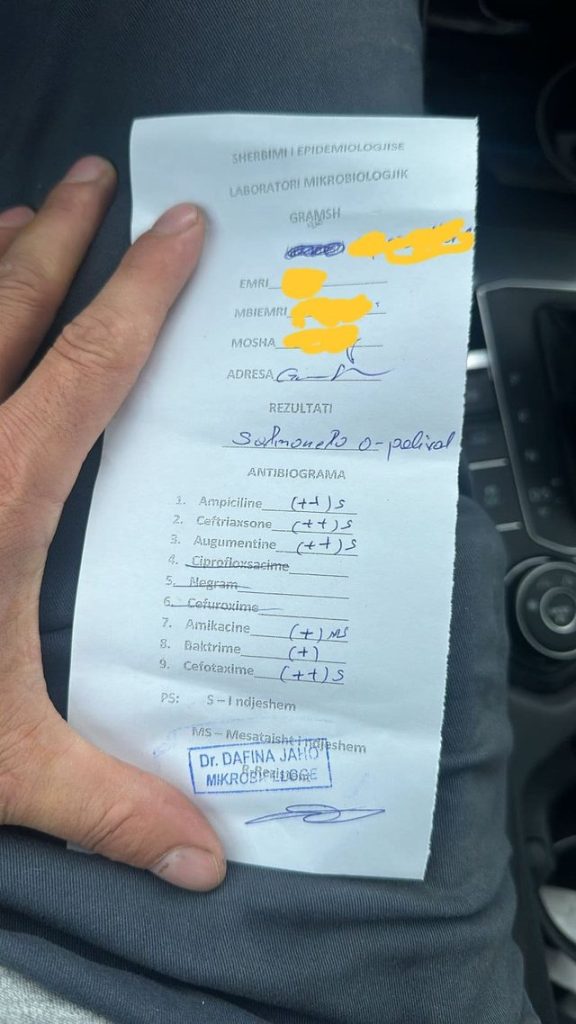 SHERBIMI I EPIDEMIOLOGJISE
LABORATORI MIKROBIOLOGJIK
GRAMSH
EMRI
MBIEMRI
MOSHA
ADRESA
REZULTATI
Salmonela O-polival
ANTIBIOGRAMA
1. Ampiciline (++) S
2. Ceftriaxsone (++) S
3. Augumentine (++) S
4. Ciprofloxsacime
5. Negram
6. Cefuroxime
7. Amikacine (+) MS
8. Baktrime (+)
9. Cefotaxime (++) S
PS: S – I ndjeshem
MS – Mesatarisht i ndjeshem
Dr. DAFINA JAHO